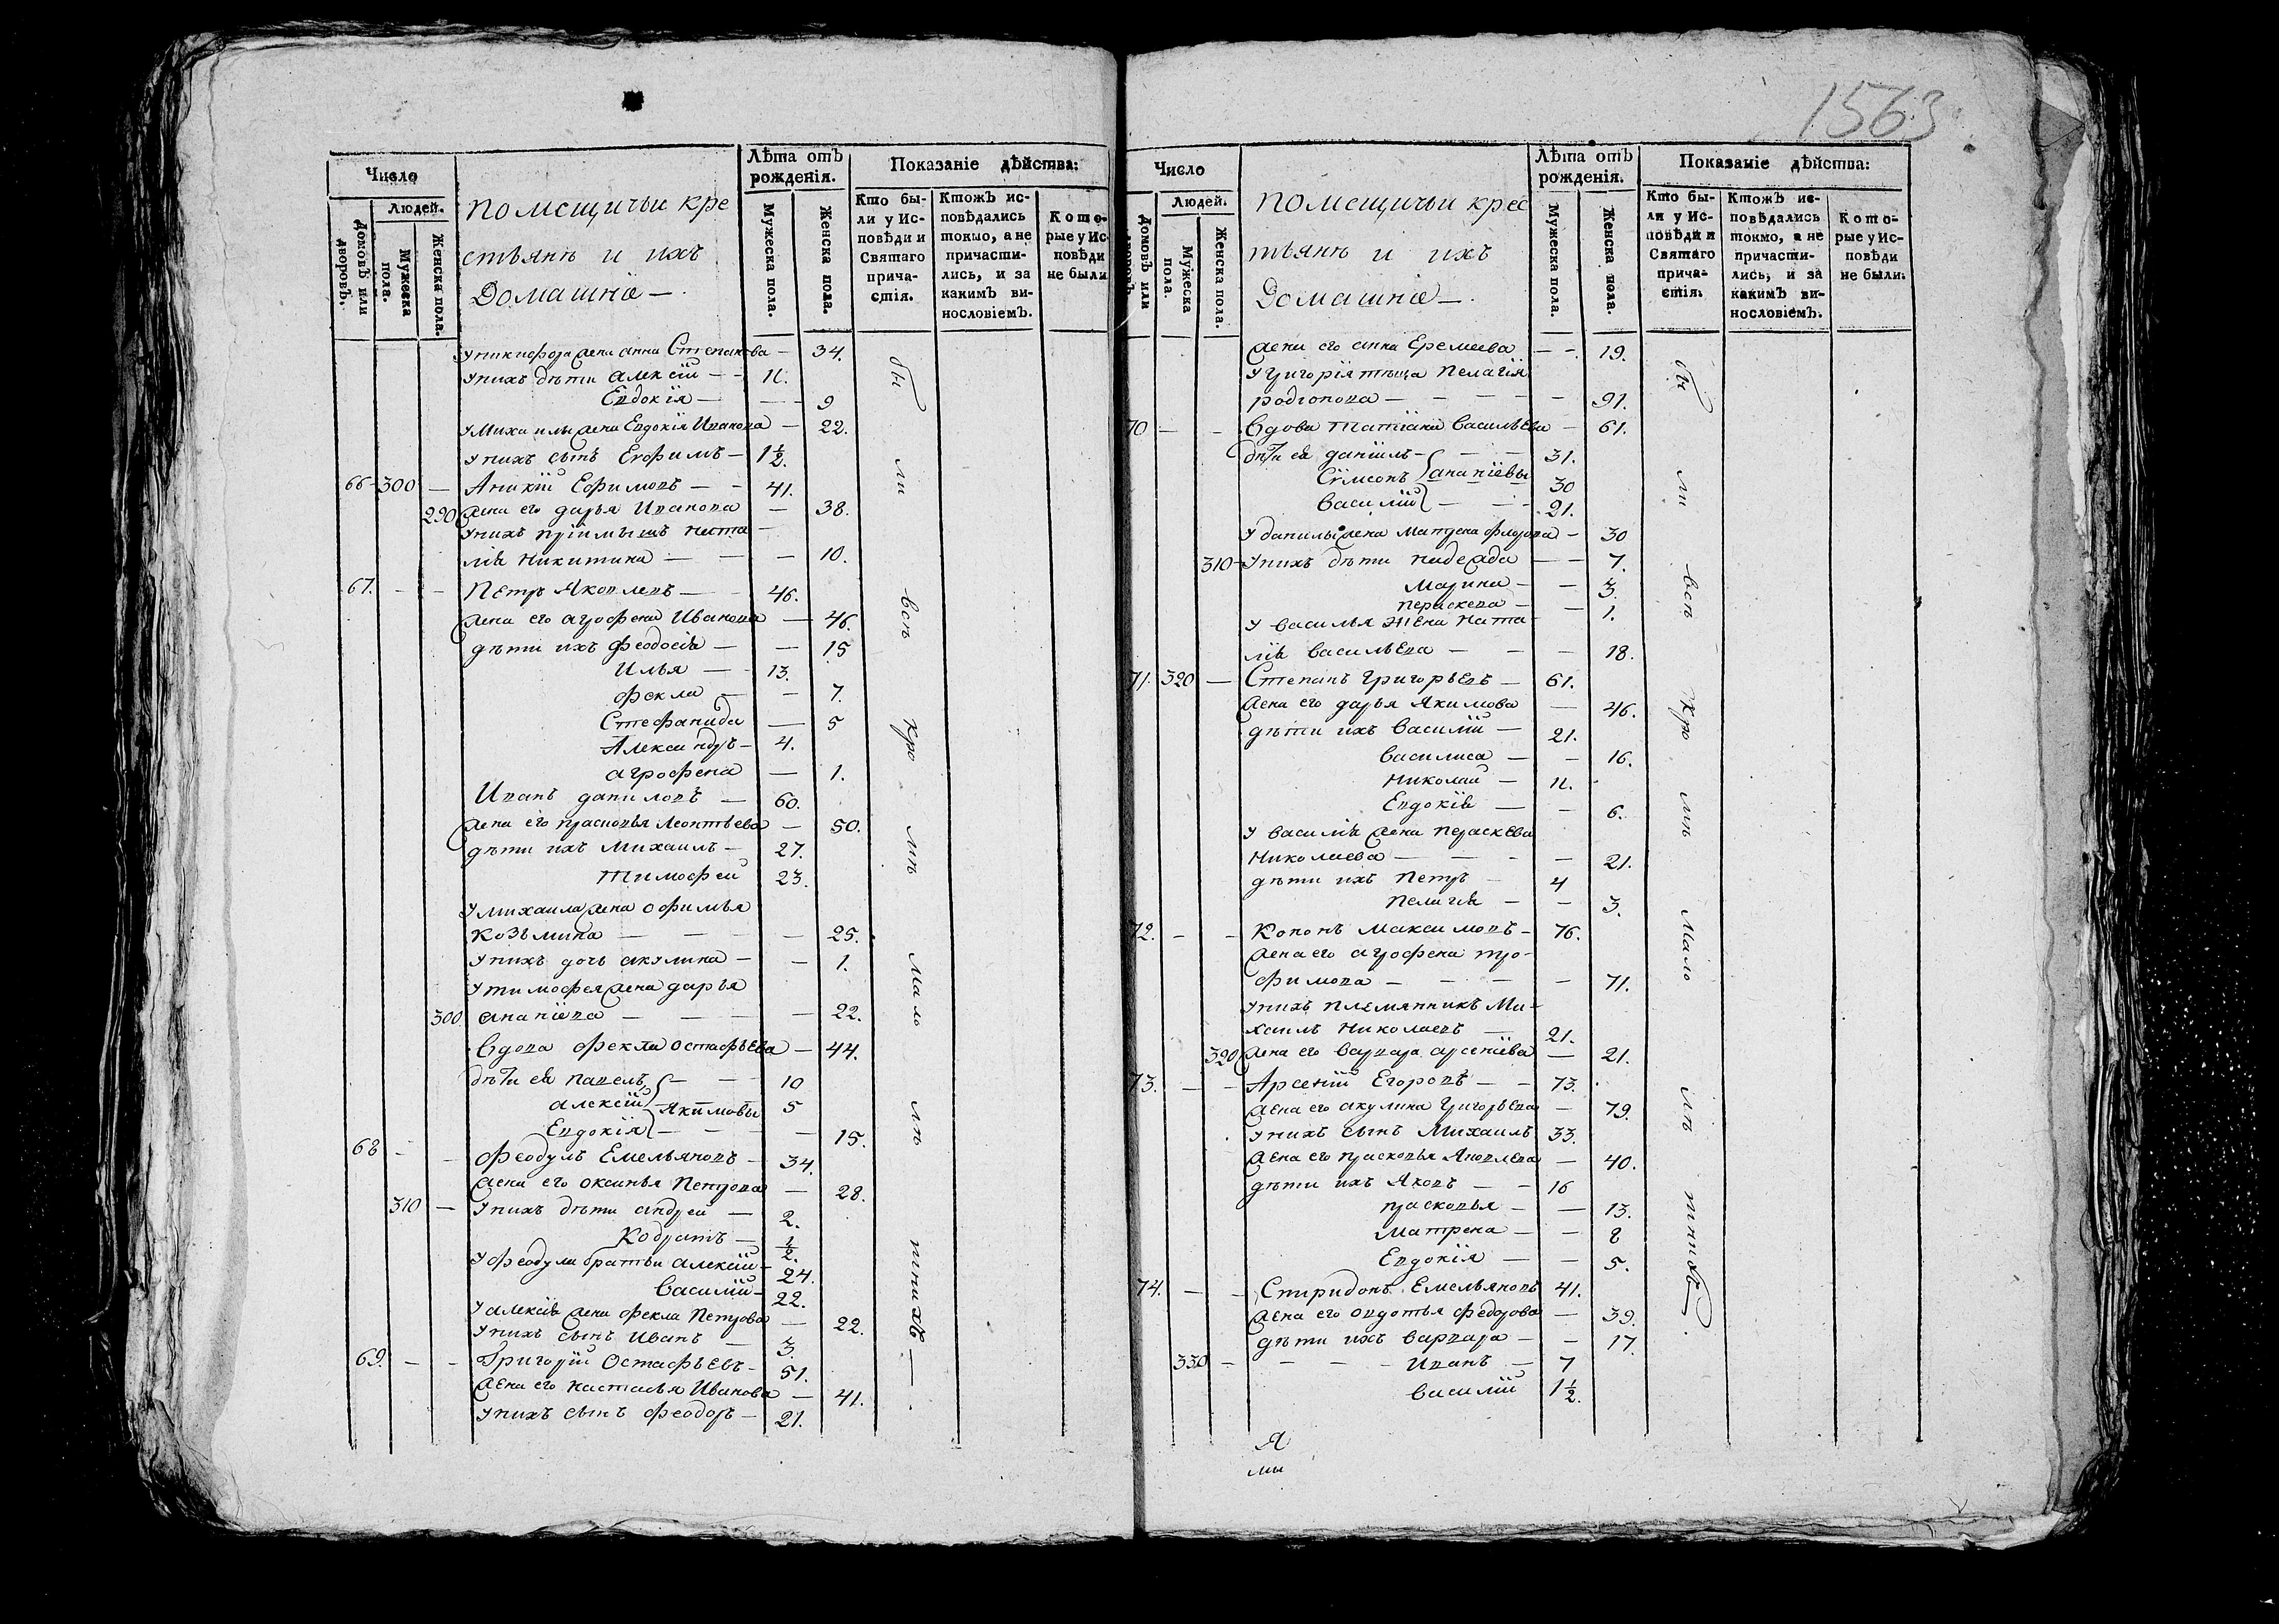 1563
Число
Людей.
Домовъ или дворовъ.
Мужеска пола.
Женска пола.
помещичьи кре
стьянѣ и ихъ
Домашніе —
Лѣта отъ рожденія.
Мужеска пола.
Женска пола.
Показаніе дѣйства:
Кто были у Исповѣди и Святаго причастія.
Ктожъ исповѣдались токмо, а не причастились, и за какимъ винословіемъ.
Которые у Исповѣди не были
у никифора жена анна Степанова — 34.
у нихъ дѣти алексій — 11.
Евдокія — 9
у Михаилы жена Евдокія Иванова — 22.
у нихъ сынъ Егофимъ — 1½.
66 300 — Аникій Ефимовъ — 41.
290 жена его дарья Иванова — 38.
у нихъ пріимышъ ната
лія Никитина — 10.
67. — — Петръ Яковлевъ — 46.
жена его агрофена Иванова — 46.
дѣти ихъ феодосія — 15
Илья — 13.
фекла — 7.
Стефанида — 5
Александръ — 4.
агрофена — 1.
Иванъ даниловъ — 60.
жена его прасковья леонтьева — 50.
дѣти ихъ Михаилъ — 27.
тимофей 23.
у михаила жена офимья
козьмина — 25.
у нихъ дочь акулина — 1.
у тимофея жена дарья
300 ананіева — 22.
Вдова фекла остафьева — 44.
дѣти ея павелъ — 10
алексій Якимовы 5
Евдокія — 15.
68 — — феодулъ Емельяновъ — 34.
жена его оксинья Петрова — 28.
310 — у нихъ дѣти андрей — 2.
Кодратъ — ½.
у феодула братьи алексій — 24.
Василій — 22.
у алексія жена фекла Петрова — 22.
у нихъ сынъ Иванъ — 3.
69. — — Григорій Остафьевъ — 51.
жена его настасья Иванова — 41.
у нихъ сынъ феодоръ — 21.
бы
ли
всѣ
кро
мѣ
мало
лѣ
тнихъ —
Число
Людей.
Домовъ или дворовъ.
Мужеска пола.
Женска пола.
помещичьи крес
тьянѣ и ихъ
Домашніе —
Лѣта отъ рожденія.
Мужеска пола.
Женска пола.
Показаніе дѣйства:
Кто были у Исповѣди и Святаго причастія.
Ктожъ исповѣдались токмо, а не причастились, и за какимъ винословіемъ.
Которые у Исповѣди не были.
жена его анна Еремеева — 19.
у григорія тѣща пелагія
родіонова — 91.
70 — — Вдова татіана васильева — 61.
дѣти ея даніилъ — 31.
Сѵмеонъ ананіевы 30
василій — 21.
у данилы жена матрена флорова — 30
310 — у нихъ дѣти надежда — 7.
Марина — 3.
пераскева — 1.
у василья жена ната
лія васильева — 18.
71. 320 — Степанъ григорьевъ — 61.
жена его дарья Якимова — 46.
дѣти ихъ василій — 21.
василиса — 16.
николай — 11.
Евдокія — 6.
у василія жена пераскева
Николаева — 21.
дѣти ихъ петръ — 4
пелагія — 3.
72. — — Кононъ максимовъ — 76.
жена его агрофена тро-
фимова — 71.
у нихъ племянникъ Ми-
хаилъ николаевъ — 21.
320 жена его варвара арсеніева — 21.
73. — — Арсеній Егоровъ — 73.
жена его акулина григорьева — 79.
у нихъ сынъ Михаилъ 33.
жена его прасковья Яковлева — 40.
дѣти ихъ Яковъ — 16
прасковья — 13.
матрена — 8
Евдокія — 5.
74. — — Спиридонъ Емельяновъ 41.
жена его овдотья федорова — 39.
дѣти ихъ варвара — 17.
330 — Иванъ — 7
василій 1½.
бы
ли
всѣ
кро
мѣ
мало
лѣ
тнихъ.
Я
мы